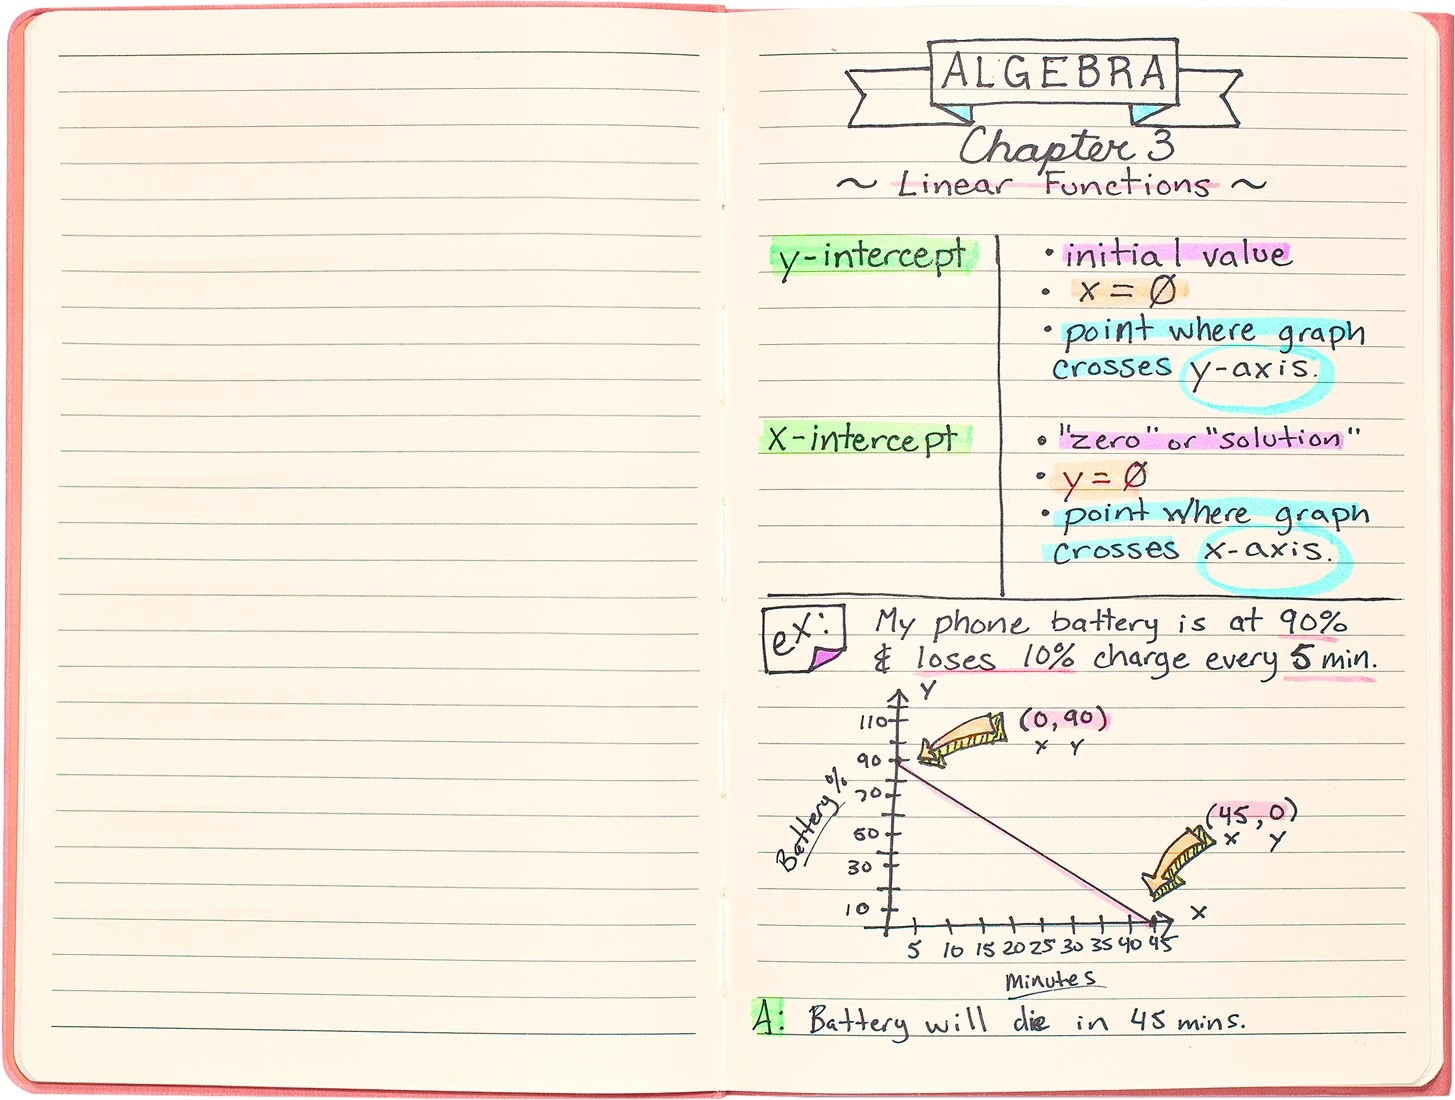 ALGEBRA
Chapter 3
~ Linear Functions ~
y-intercept
• initial value
• x = Ø
• point where graph
crosses y-axis.
x-intercept
• "zero" or "solution"
• y = Ø
• point where graph
crosses x-axis.
ex: My phone battery is at 90%
& loses 10% charge every 5 min.
Y
110
(0, 90)
x y
90
70
50
30
10
Battery %
(45, 0)
x y
X
5 10 15 20 25 30 35 40 45
Minutes
A: Battery will die in 45 mins.